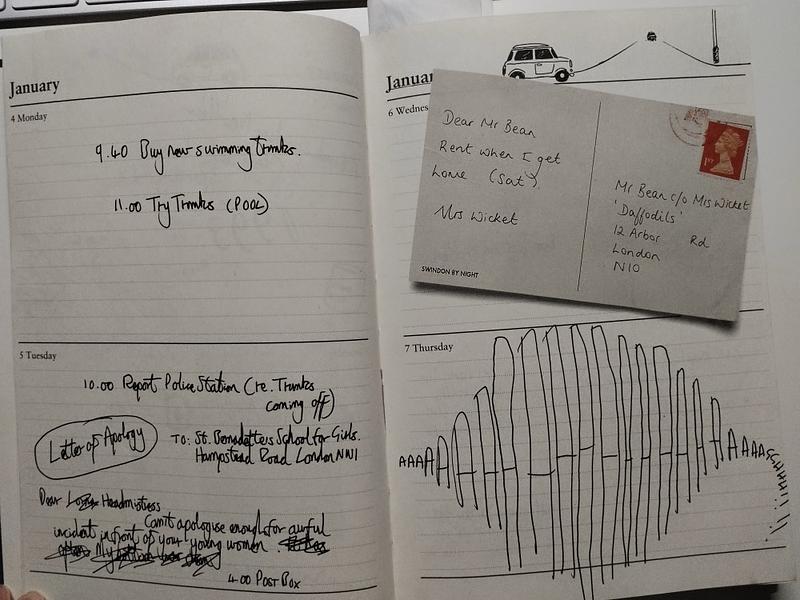 January
4 Monday
9.40 Buy new swimming trunks.
11.00 Try Trunks (POOL)
5 Tuesday
10.00 Report Police Station (re. Trunks
coming off)
Letter of Apology
TO: St. Bernadetters School for Girls.
Hampstead Road London NW1
Dear Headmistress
Can't apologise enough for awful
incident in front of your young women.
4.00 POST BOX
Januar
6 Wednes
Dear Mr Bean
Rent when I get
home (Sat).
Mrs Wicket
SWINDON BY NIGHT
1ST
Mr Bean c/o Mrs Wicket
'Daffodils'
12 Arbor Rd
London
N10
7 Thursday